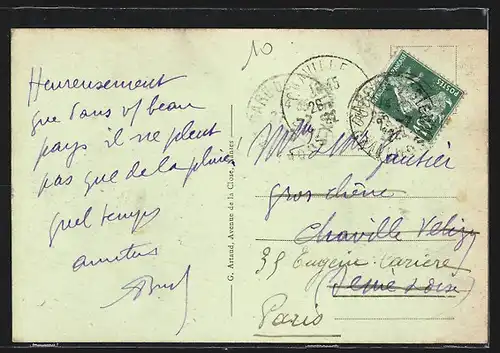 10
Heureusement
que dans ce beau
pays il ne pleut
pas que de la pluie
quel temps
amitiés
G. Artaud, Avenue de la Close, Nantes
CHAVILLE
26
POSTES
Gautier
gros chêne
Chaville Velizy
35 Eugène Carière
Seine & Oise
Paris